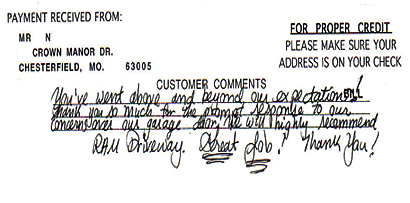 PAYMENT RECEIVED FROM:
MR N
CROWN MANOR DR.
CHESTERFIELD, MO. 63005
FOR PROPER CREDIT
PLEASE MAKE SURE YOUR
ADDRESS IS ON YOUR CHECK
CUSTOMER COMMENTS
You've went above and beyond our expectations!
Thank you so much for the prompt response to our
concerns over our garage door. We will highly recommend
RAM Driveway. Great Job! Thank You!